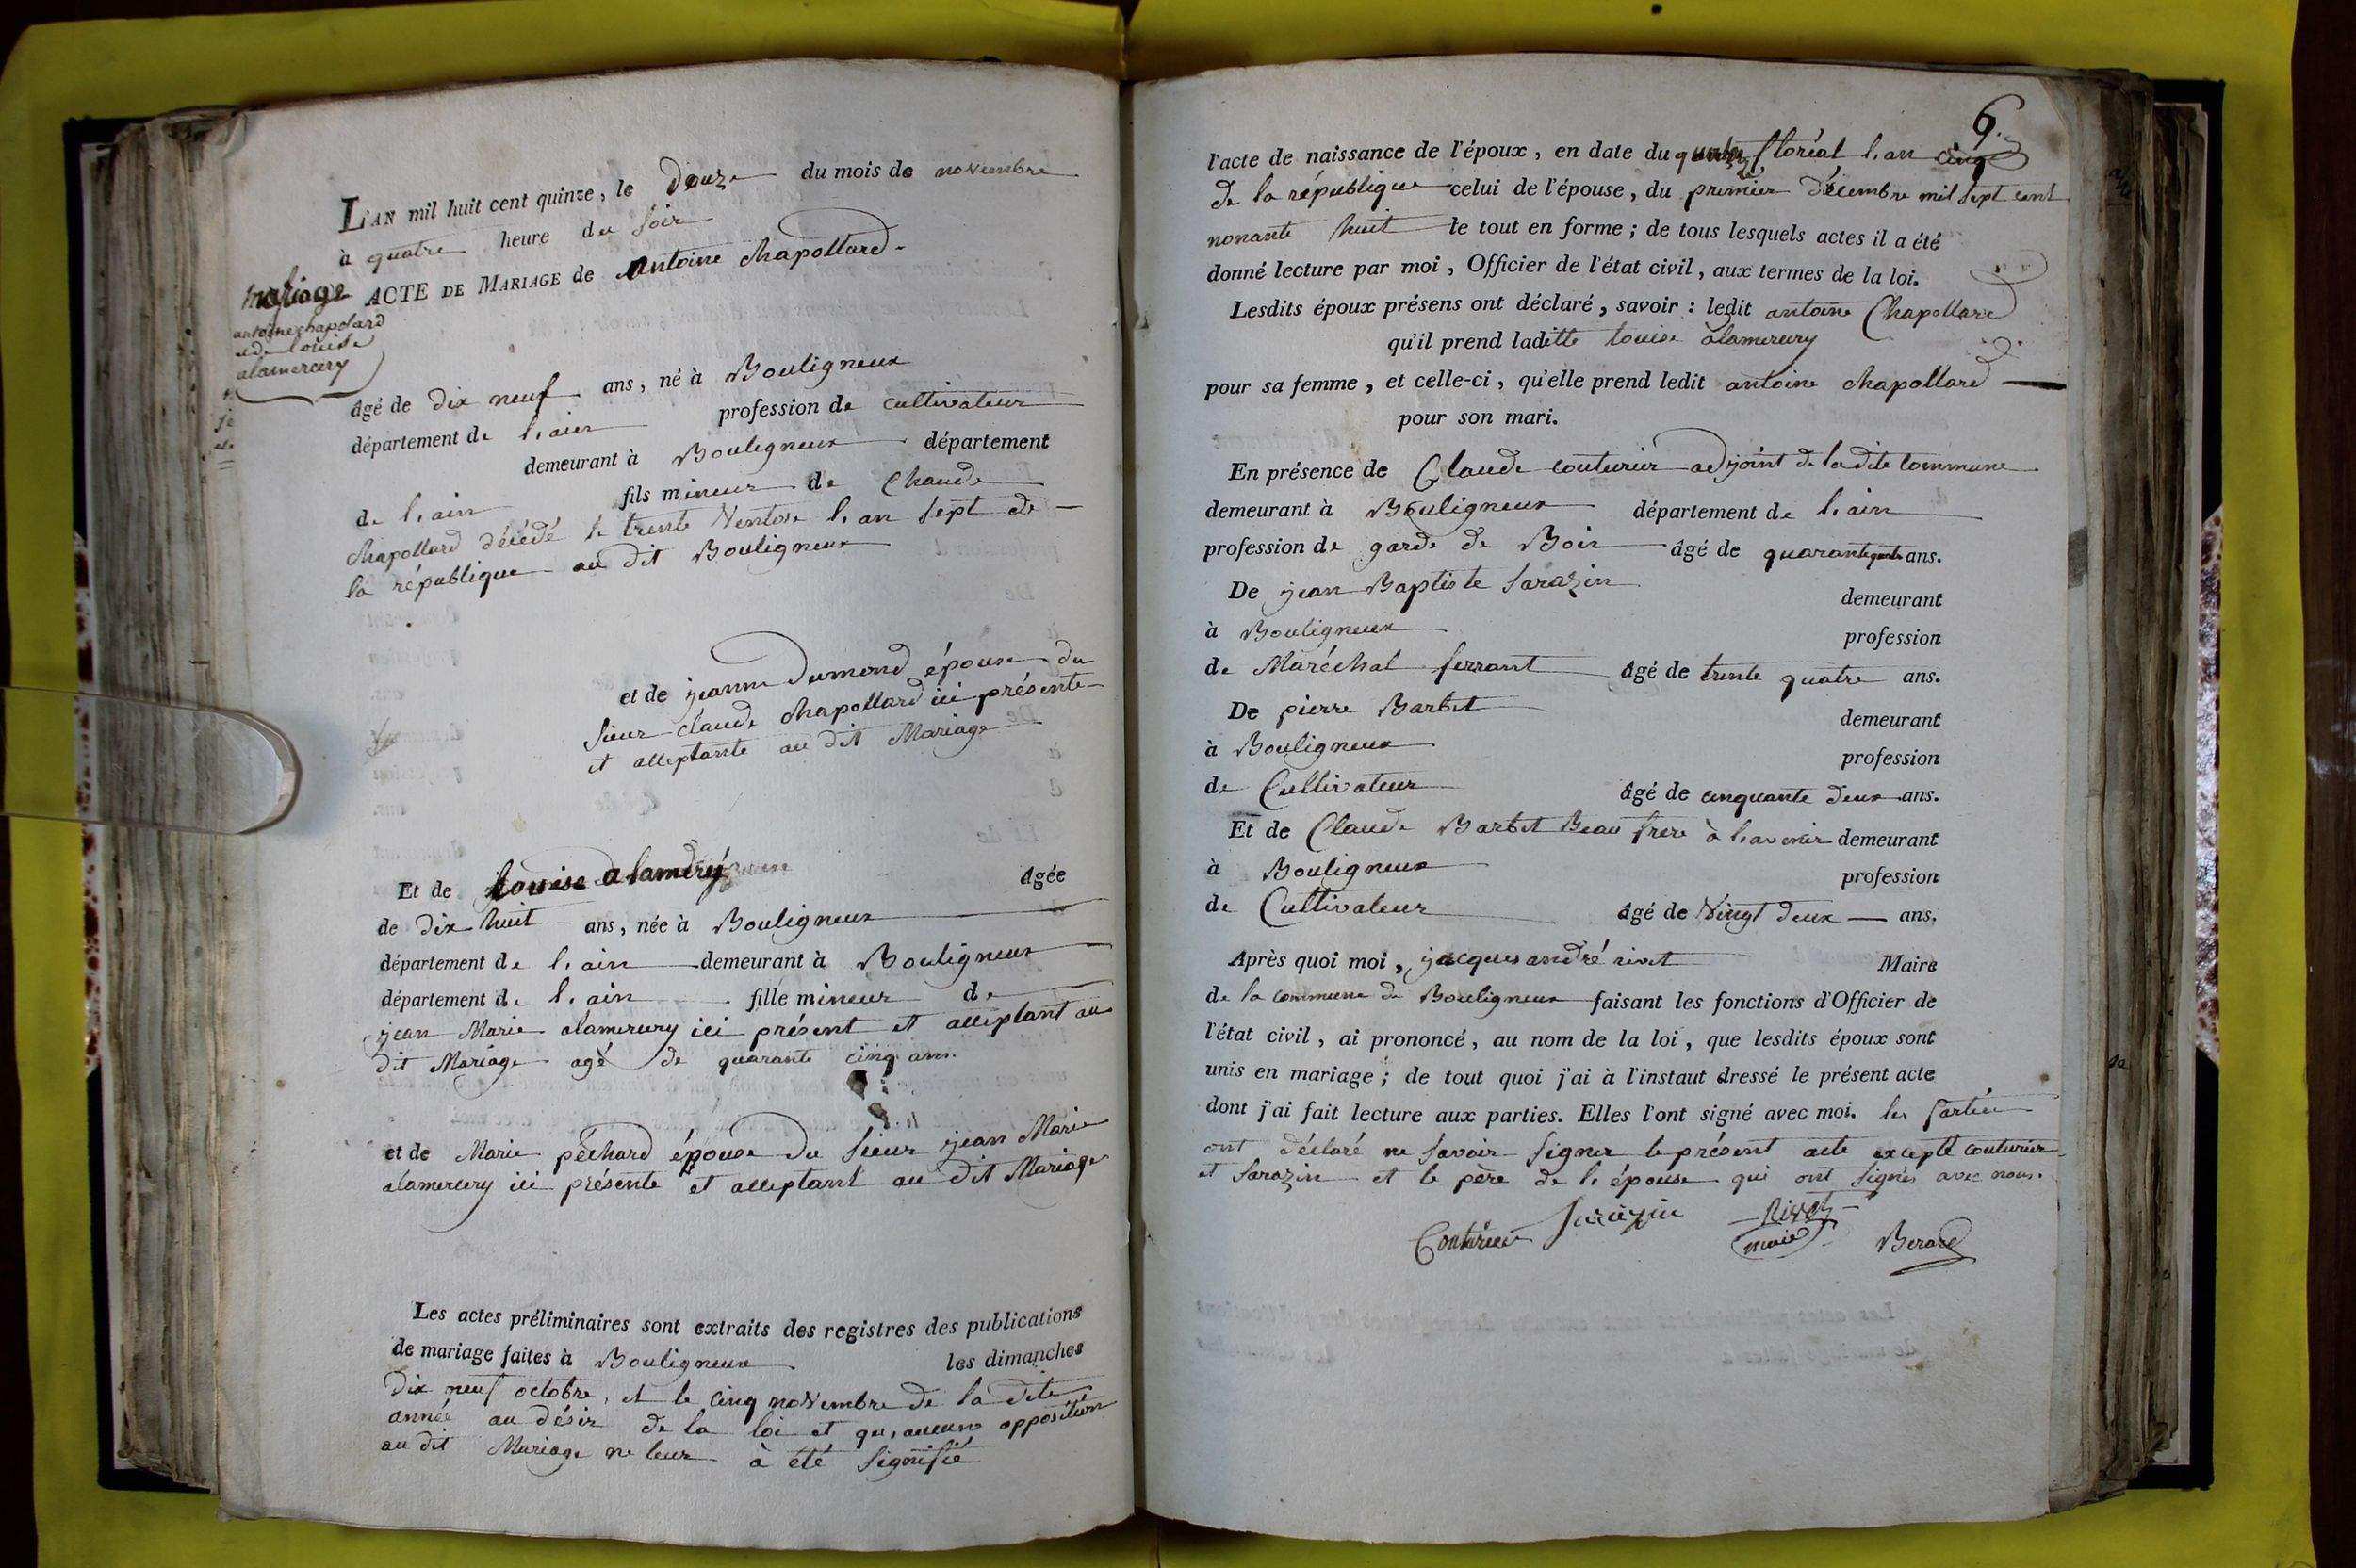 L'AN mil huit cent quinze, le Douze du mois de novembre
à quatre heure du soir
mariage
antoine chapolard
et de louise
alamercery
ACTE DE MARIAGE de Antoine chapollard
âgé de dix neuf ans, né à Bouligneux
département de l'ain profession de cultivateur
demeurant à Bouligneux département
de l'ain fils mineur de Claude
chapollard décédé le trente Ventose l'an sept de
la république au dit Bouligneux
et de jeanne Dumond épouse du
sieur claude chapollard ici présente
et alleptante au dit Mariage
Et de louise alamery âgée
de dix huit ans, née à Bouligneux
département de l'ain demeurant à Bouligneux
département de l'ain fille mineur de
jean Marie alamercery ici présent et alleptant au
dit Mariage agé de quarante cinq ans.
et de Marie pêchard épouse du sieur jean Marie
alamercery ici présente et alleptant au dit Mariage
Les actes préliminaires sont extraits des registres des publications
de mariage faites à Bouligneux les dimanches
Dix neuf octobre, et le cinq novembre de la dite
année au désir de la loi et qu'aucune opposition
au dit Mariage ne leur à été signifié
6.
l'acte de naissance de l'époux, en date du floréal l'an cinq
de la république celui de l'épouse, du premier décembre mil sept cent
nonante huit le tout en forme; de tous lesquels actes il a été
donné lecture par moi, Officier de l'état civil, aux termes de la loi.
Lesdits époux présens ont déclaré, savoir: ledit antoine Chapollard
qu'il prend laditte louise alamercery
pour sa femme, et celle-ci, qu'elle prend ledit antoine chapollard
pour son mari.
En présence de Claude couturier adjoint de la dite commune
demeurant à Bouligneux département de l'ain
profession de garde de Bois âgé de quarante ans.
De jean Baptiste sarazin demeurant
à Bouligneux profession
de Maréchal ferrant âgé de trente quatre ans.
De pierre Barbet demeurant
à Bouligneux profession
de Cultivateur âgé de cinquante deux ans.
Et de Claude Barbet Beau frere à l'avenir demeurant
à Bouligneux profession
de Cultivateur âgé de Vingt deux ans.
Après quoi moi, jacques andré rivet Maire
de la commune de Bouligneux faisant les fonctions d'Officier de
l'état civil, ai prononcé, au nom de la loi, que lesdits époux sont
unis en mariage; de tout quoi j'ai à l'instaut dressé le présent acte
dont j'ai fait lecture aux parties. Elles l'ont signé avec moi. les parties
ont déclaré ne savoir signer le présent acte excepté couturier
et sarazin et le père de l'épouse qui ont signés avec nous.
Couturier Sarazin Rivet
maire Berard